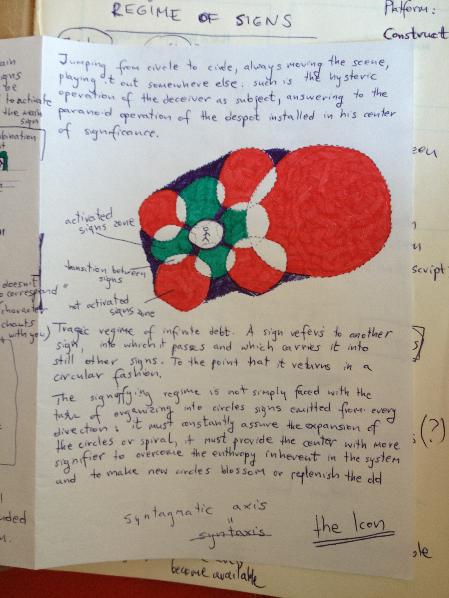 REGIME OF SIGNS
Platform:
Construct
Jumping from circle to circle, always moving the scene,
playing it out somewhere else: such is the hysteric
operation of the deceiver as subject, answering to the
paranoid operation of the despot installed in his center
of significance.
be
to activate
the main
sign
activated
signs zone
transition between
signs
not activated
signs zone
script
doesn't
correspond
with you)
Tragic regime of infinite debt. A sign refers to another
sign, into which it passes and which carries it into
still other signs. To the point that it returns in a
circular fashion.
The signifying regime is not simply faced with the
task of organizing into circles signs emitted from every
direction; it must constantly assure the expansion of
the circles or spiral, it must provide the center with more
signifier to overcome the enthropy inherent in the system
and to make new circles blossom or replenish the old
(?)
syntagmatic axis
"
syntaxis
the Icon
become available